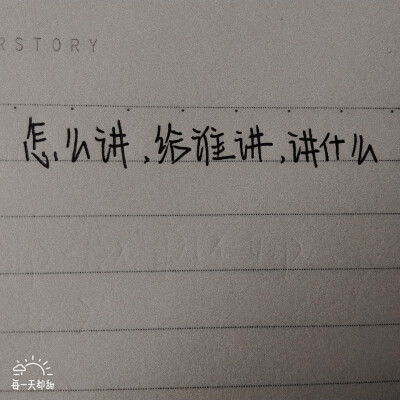 RSTORY
怎么讲,给谁讲,讲什么
每一天都甜